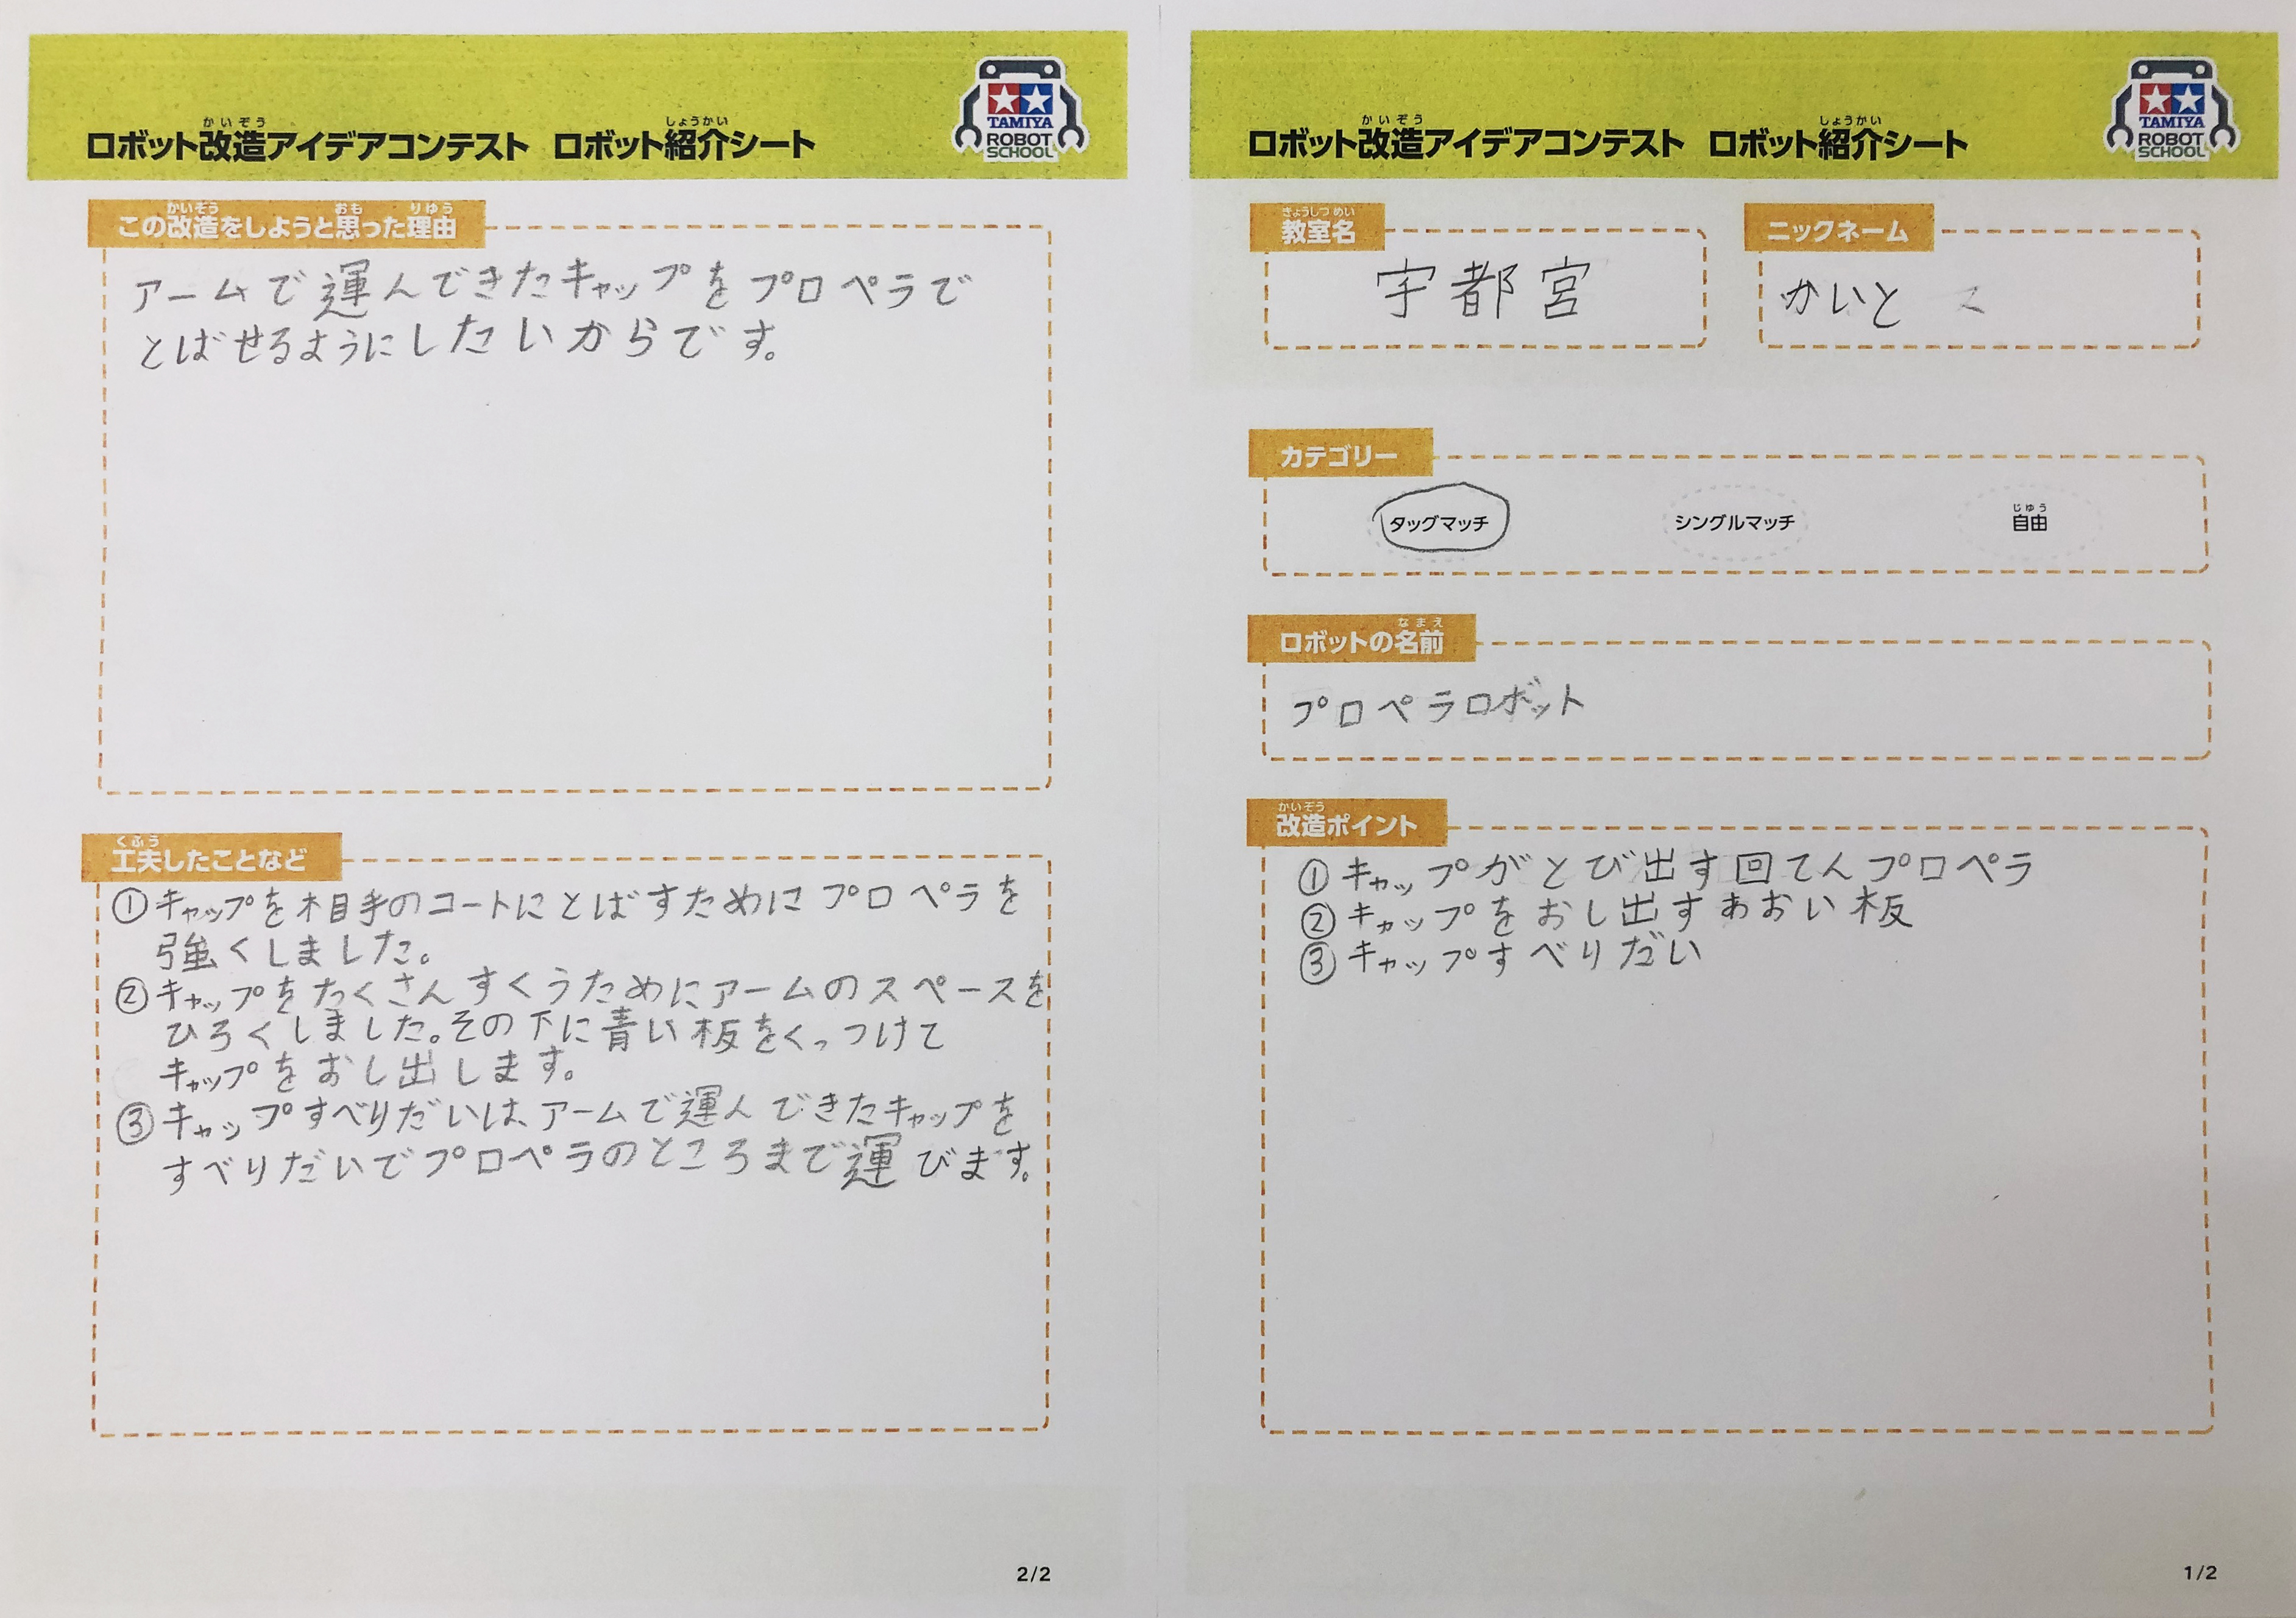 かいぞう しょうかい
ロボット改造アイデアコンテスト ロボット紹介シート
TAMIYA
ROBOT
SCHOOL
きょうしつ めい
教室名
宇都宮
ニックネーム
かいと
カテゴリー
タッグマッチ
シングルマッチ
じゆう
自由
なまえ
ロボットの名前
プロペラロボット
かいぞう
改造ポイント
①キャップがとび出す回てんプロペラ
②キャップをおし出すあおい板
③キャップすべりだい
1/2
かいぞう しょうかい
ロボット改造アイデアコンテスト ロボット紹介シート
TAMIYA
ROBOT
SCHOOL
かいぞう おも りゆう
この改造をしようと思った理由
アームで運んできたキャップをプロペラで
とばせるようにしたいからです。
くふう
工夫したことなど
①キャップを相手のコートにとばすためにプロペラを
強くしました。
②キャップをたくさんすくうためにアームのスペースを
ひろくしました。その下に青い板をくっつけて
キャップをおし出します。
③キャップすべりだいは、アームで運んできたキャップを
すべりだいでプロペラのところまで運びます。
2/2